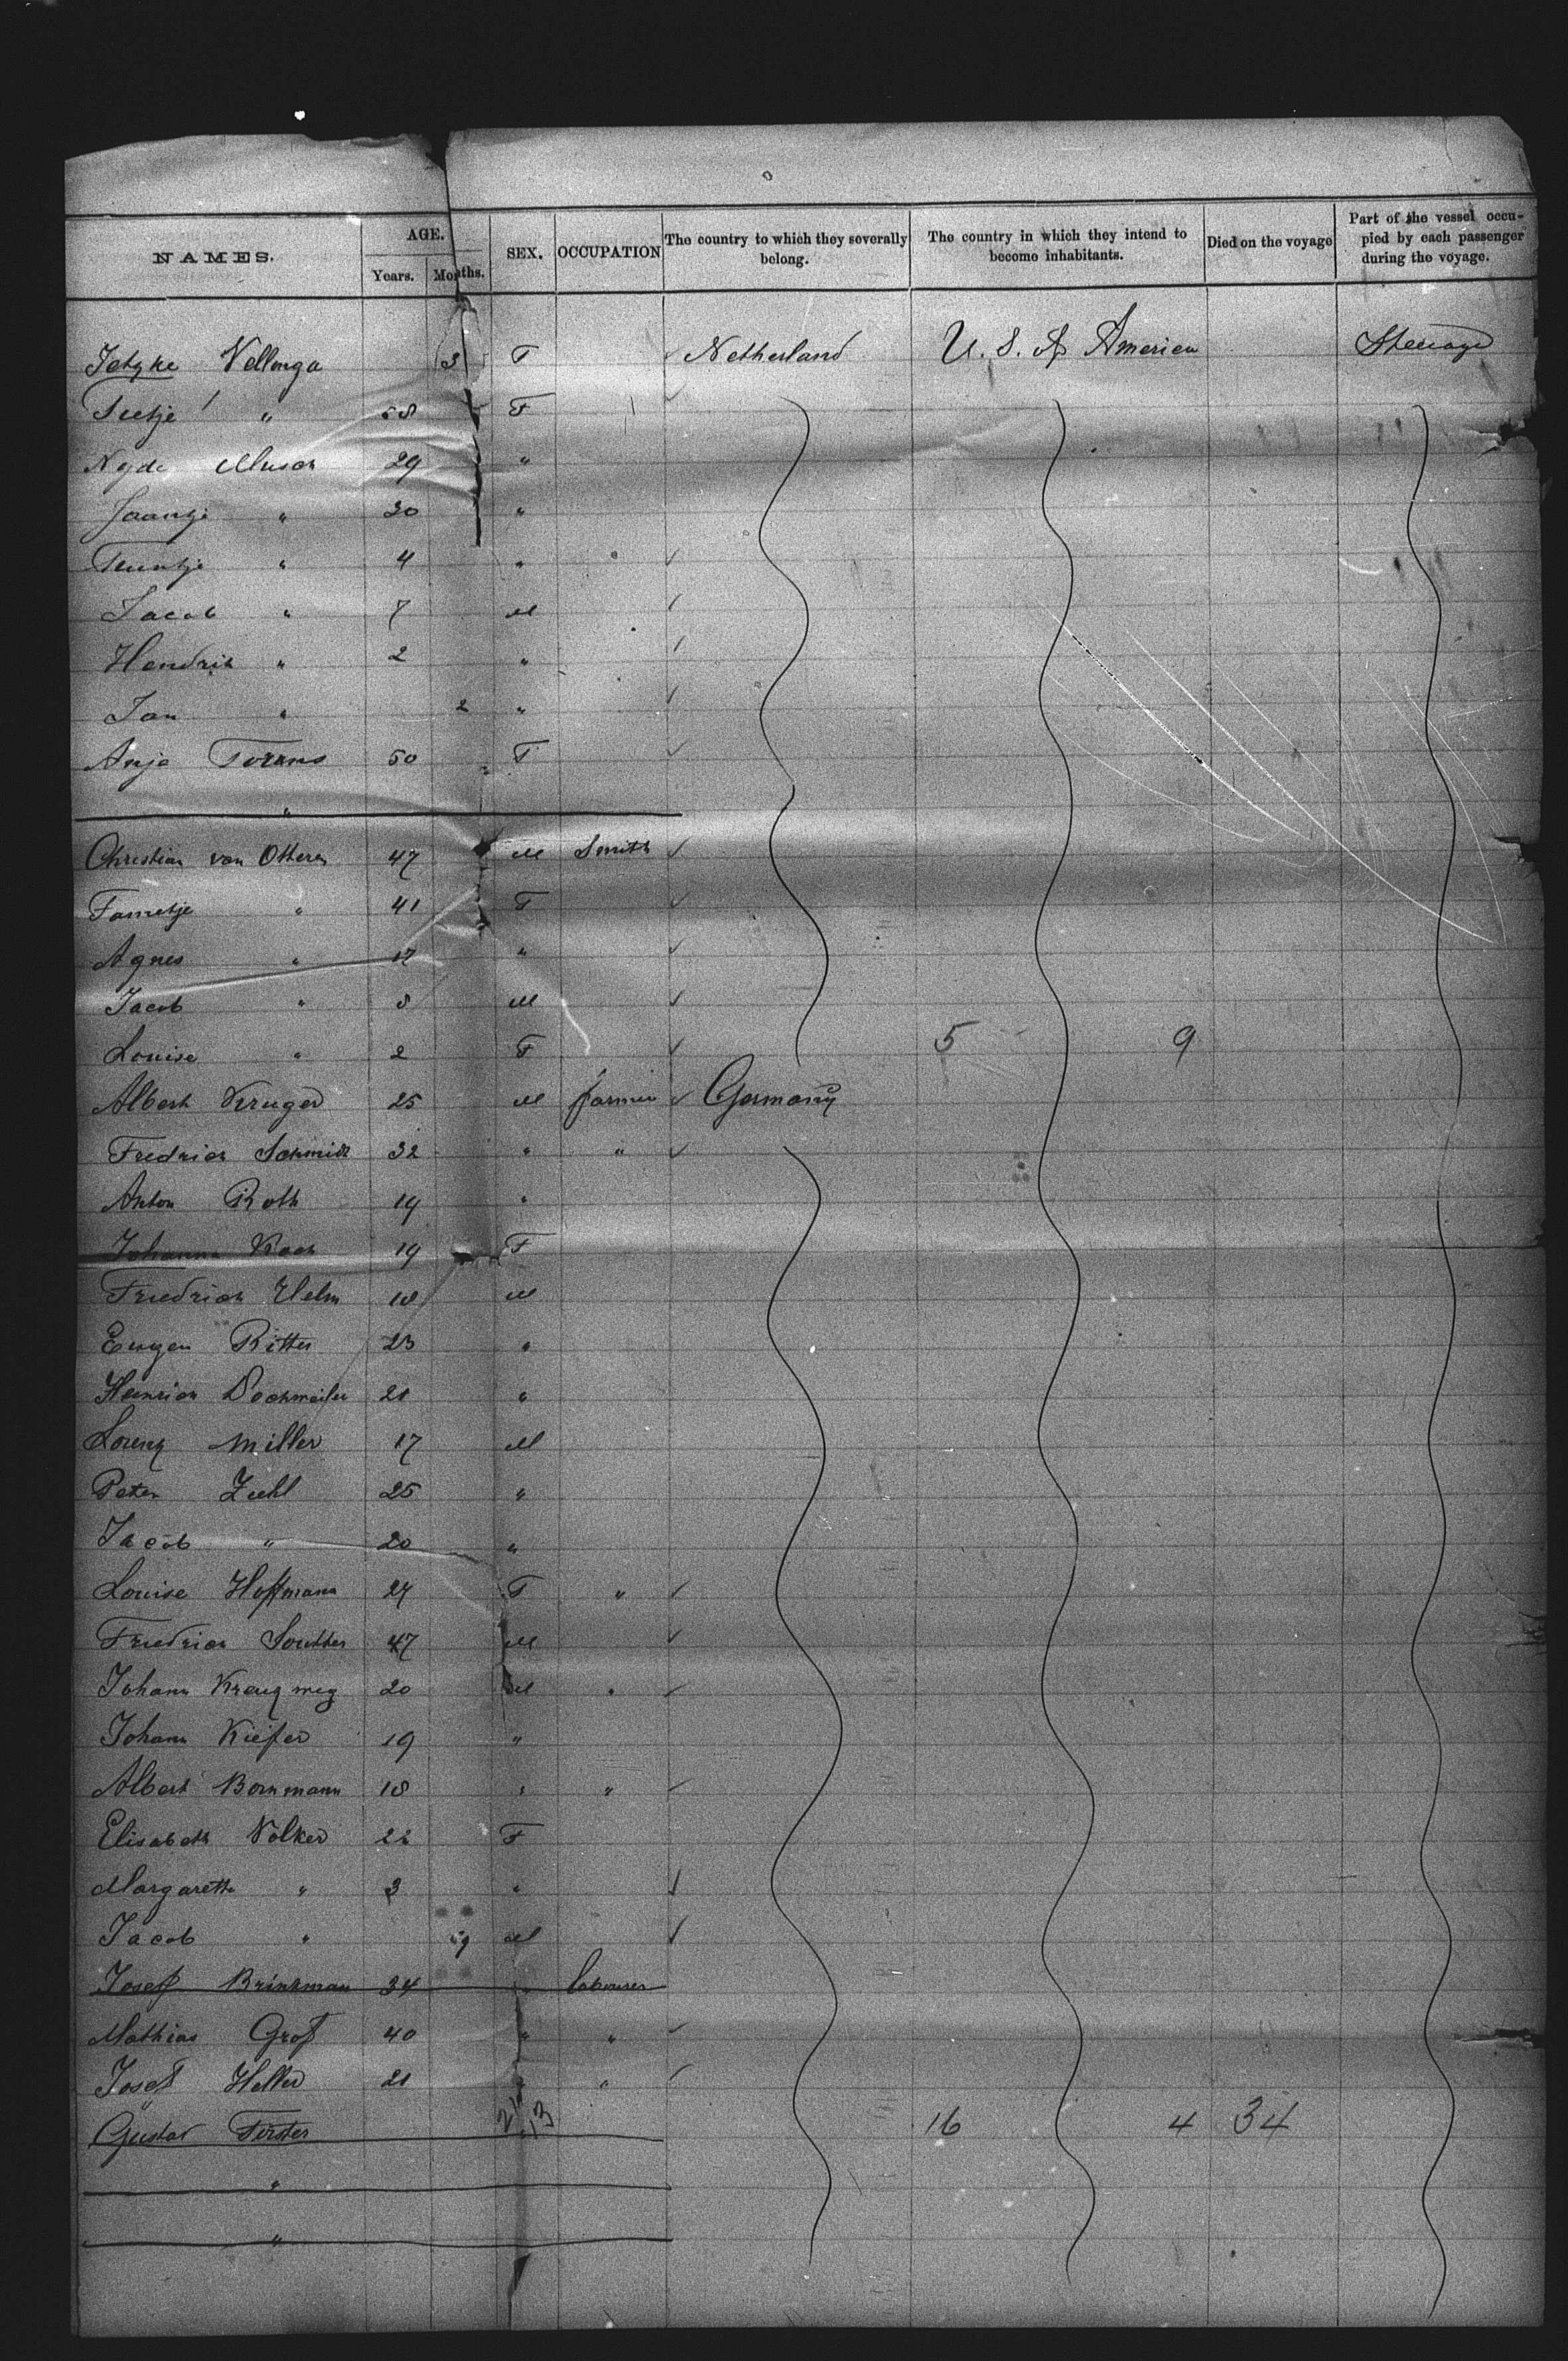 NAMES. AGE. SEX. OCCUPATION The country to which they severally belong. The country in which they intend to become inhabitants. Died on the voyage Part of the vessel occupied by each passenger during the voyage.
Years. Months.
Vellinga 3 F Netherland U. S. of America Steerage
" 58 F
29 "
Jaantje " 30 "
Teuntje " 4 "
Jacob " 7 M
Hendrik " 2 "
Jan " 2 "
Anje 50 F
"
Christian van Otteren 47 M Smith
" 41 F
Agnes " 17 "
Jacob " 8 M
Louise " 2 F 5 9
Albert Kruger 25 M farmer Germany
Fredrich Schmidt 32 " "
Anton Roth 19 "
Johanna Koch 19 F
Friedrich Helm 18 M
Eugen Ritter 23 "
Heinrich 21 "
Lorenz Miller 17 M
Peter Ziehl 25 "
Jacob " 20 "
Louise Hoffmann 24 F "
Friedrich 47 M
Johann 20 M "
Johann Kiefer 19 "
Albert Bornmann 18 " "
Elisabeth Volker 22 F
Margareth " 3 "
Jacob " 9 M
Josef Brinkman 34 " labourer
Mathias Groß 40 " "
Josef Heller 21 " "
Gustav Förster 21 13 16 4 34
"
"